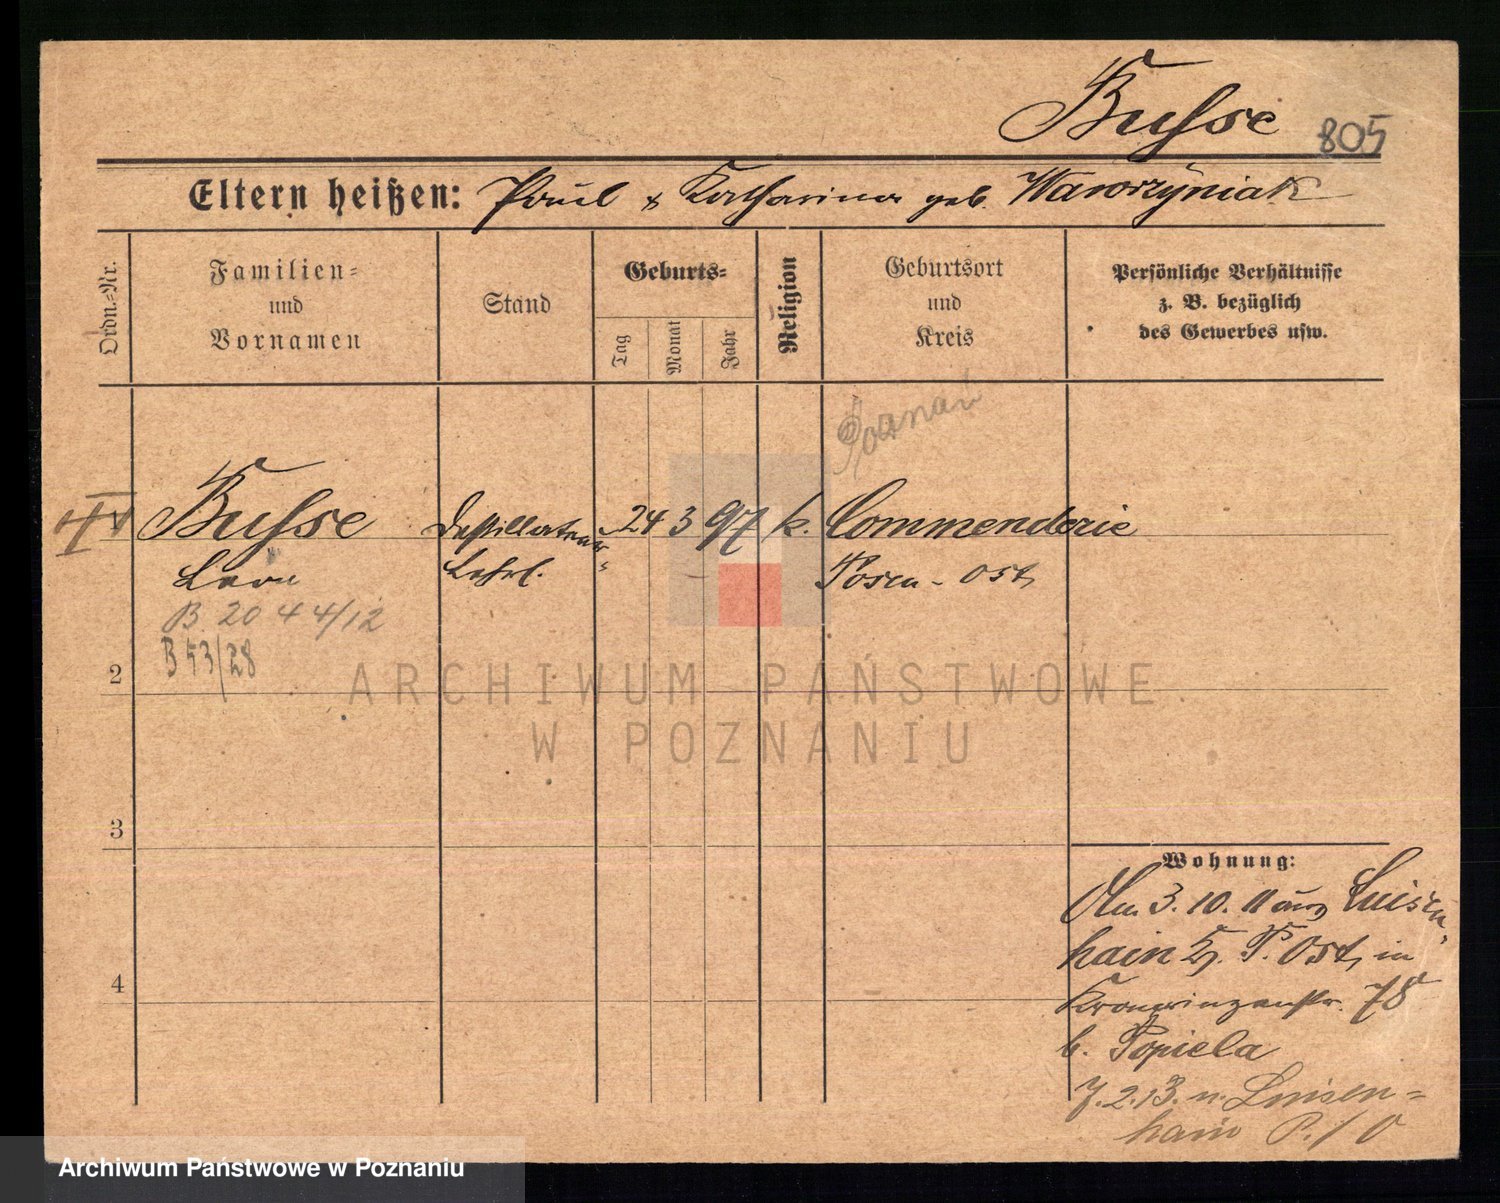 Busse 805
Eltern heißen: Paul & Katharina geb. Wawrzyniak
Ordn.-Nr.
Familien-
und
Vornamen
Stand
Geburts-
Tag
Monat
Jahr
Religion
Geburtsort
und
Kreis
Persönliche Verhältnisse
z. B. bezüglich
des Gewerbes usw.
Poznań
Busse Destillateur- 24 3 97 k. Commenderie
Leon Lehrl. Posen-Ost
B 2044/12
B 53/28
2
ARCHIWUM PAŃSTWOWE
W POZNANIU
3
Wohnung:
Am 3. 10. 11 aus Luisen-
hain Kr. P. Ost, in
4
Kronprinzenstr. 78
b. Popiela
7.2.13. n. Luisen-
hain P. / O
Archiwum Państwowe w Poznaniu